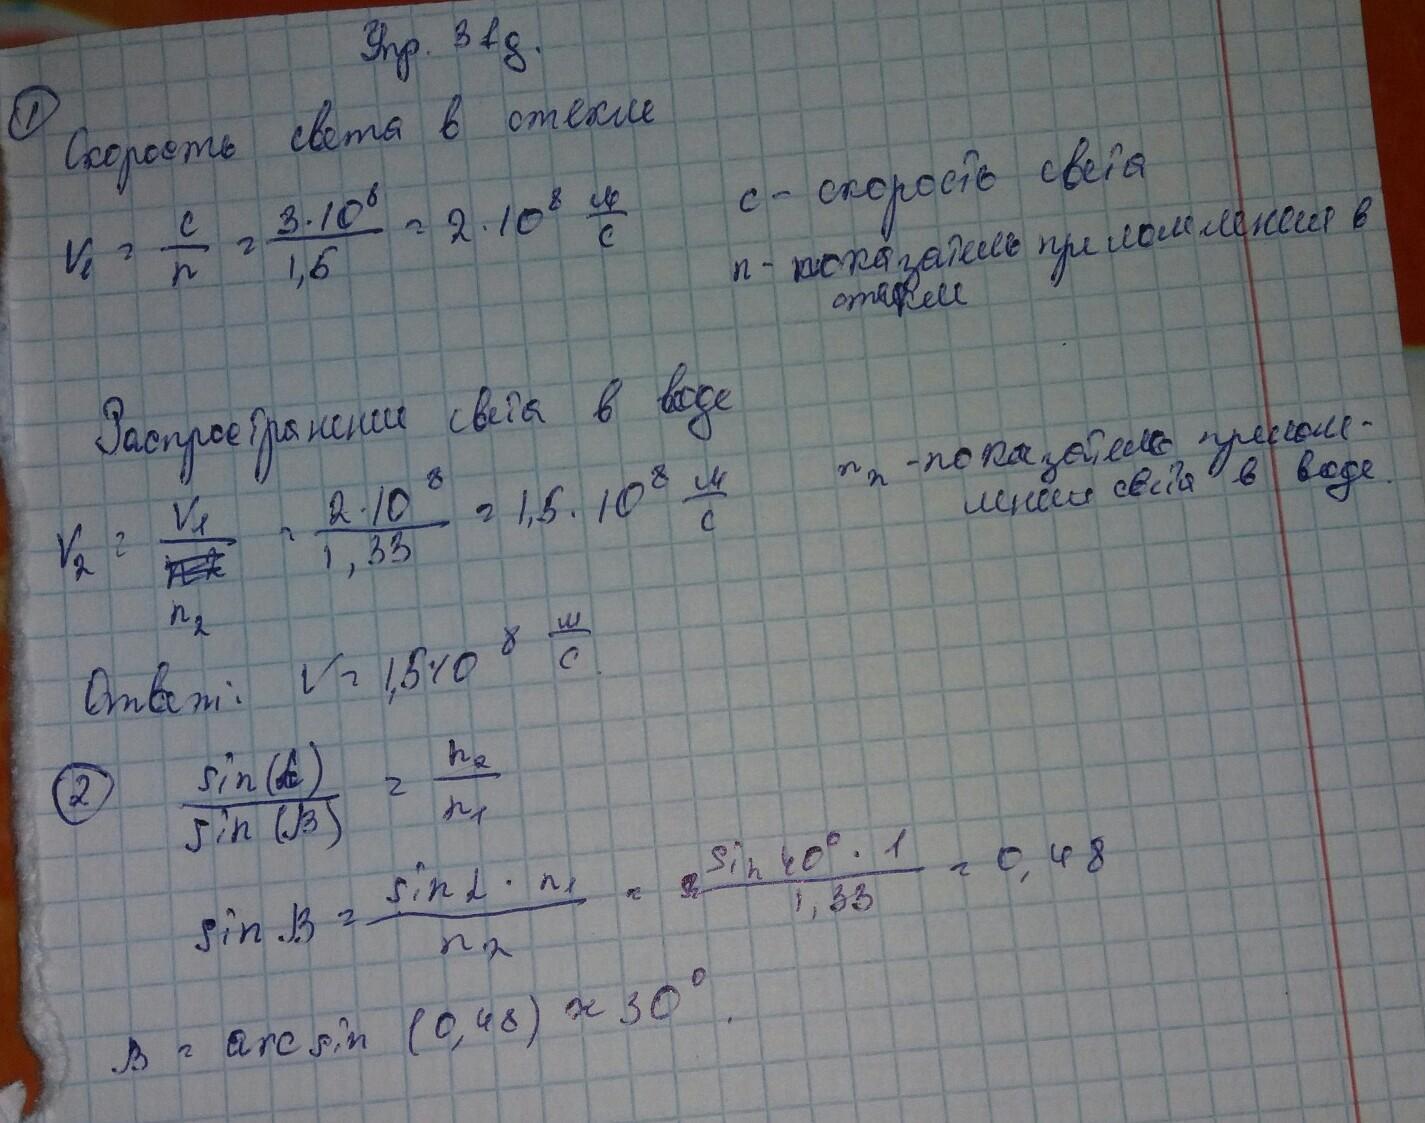 Упр. 31д.
①
Скорость света в стекле
V₁ = c/n = 3·10⁸/1,5 = 2·10⁸ м/с
c - скорость света
n - показатель преломления в
стекле
Распространении света в воде
V₂ = V₁/n₂ = 2·10⁸/1,33 = 1,5·10⁸ м/с
n₂ - показатель прелом-
ления света в воде.
Ответ: V = 1,5·10⁸ м/с.
② sin(α)/sin(β) = n₂/n₁
sin β = sin α · n₁/n₂ = sin 40° · 1/1,33 = 0,48
β = arcsin (0,48) ≈ 30°.